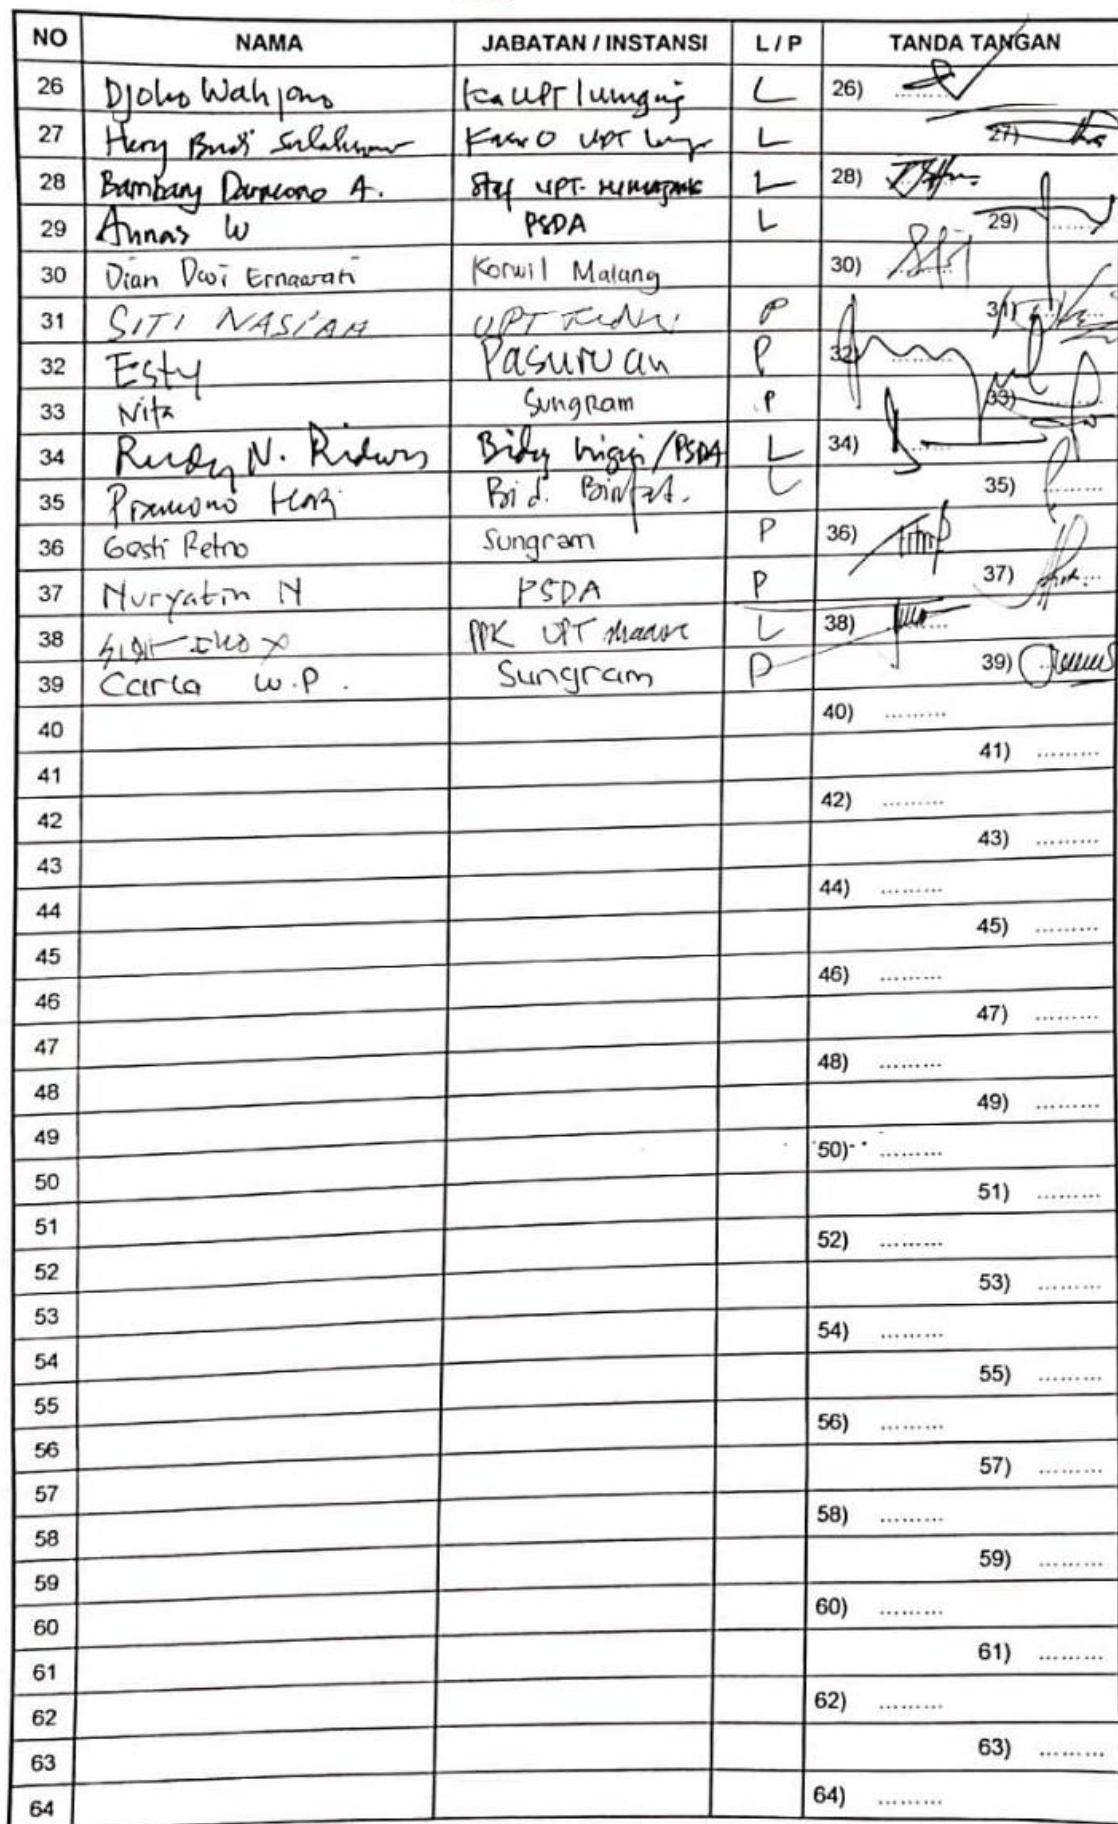 NO NAMA JABATAN / INSTANSI L / P TANDA TANGAN
26 Djoko Wahjono Ka UPT Lumajang L 26) .........
27 Hery Budi KasiO UPT L 27)
28 Bambang A. Staf UPT. Lumajang L 28)
29 Annas W PSDA L 29) .........
30 Dian Dwi Ernawati Korwil Malang 30)
31 SITI NASIAH UPT Kediri P 31)
32 Esty Pasuruan P 32)
33 Nita Sungram P 33)
34 Rudy N. Ridwan Bidg Irigasi / PSDA L 34)
35 Pramono Hadi Bid. Binfat. L 35) .........
36 Gesti Retno Sungram P 36)
37 Nuryatin N PSDA P 37)
38 PPK UPT L 38)
39 Carla W.P. Sungram P 39)
40 40) .........
41 41) .........
42 42) .........
43 43) .........
44 44) .........
45 45) .........
46 46) .........
47 47) .........
48 48) .........
49 49) .........
50 50) .........
51 51) .........
52 52) .........
53 53) .........
54 54) .........
55 55) .........
56 56) .........
57 57) .........
58 58) .........
59 59) .........
60 60) .........
61 61) .........
62 62) .........
63 63) .........
64 64) .........